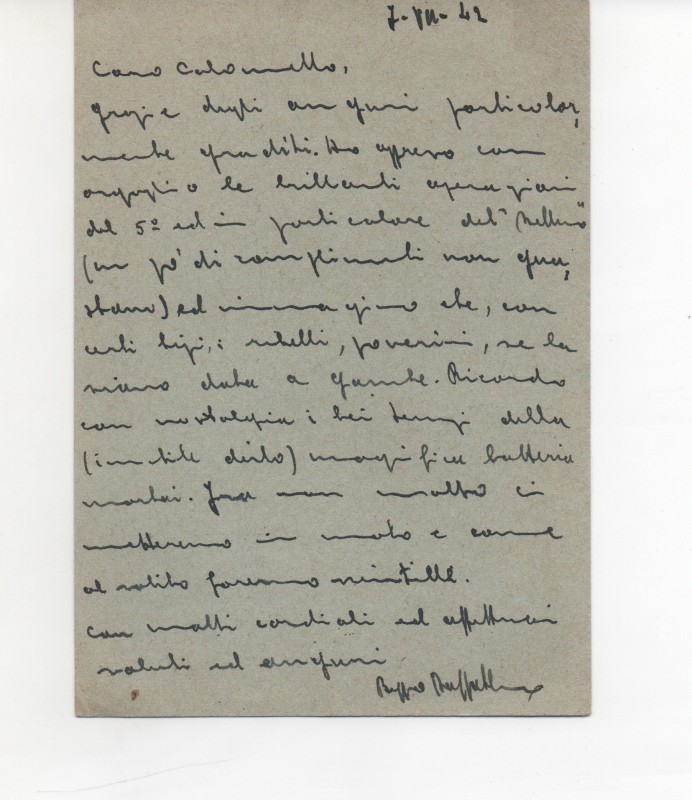 7-VII-42
Caro Colonnello,
Grazie degli auguri particolar,
mente graditi. Ho appreso con
orgoglio le brillanti operazioni
del 5º ed in particolare del "Nettuno"
(un pò di complimenti non gua,
stano) ed immagino che, con
certi tipi, i ribelli, poverini, se la
siano data a gambe. Ricordo
con nostalgia i bei tempi della
(inutile dirlo) magnifica batteria
mortai. Fra non molto ci
metteremo in moto e come
al solito faremo scintille.
Con molti cordiali ed affettuosi
saluti ed auguri